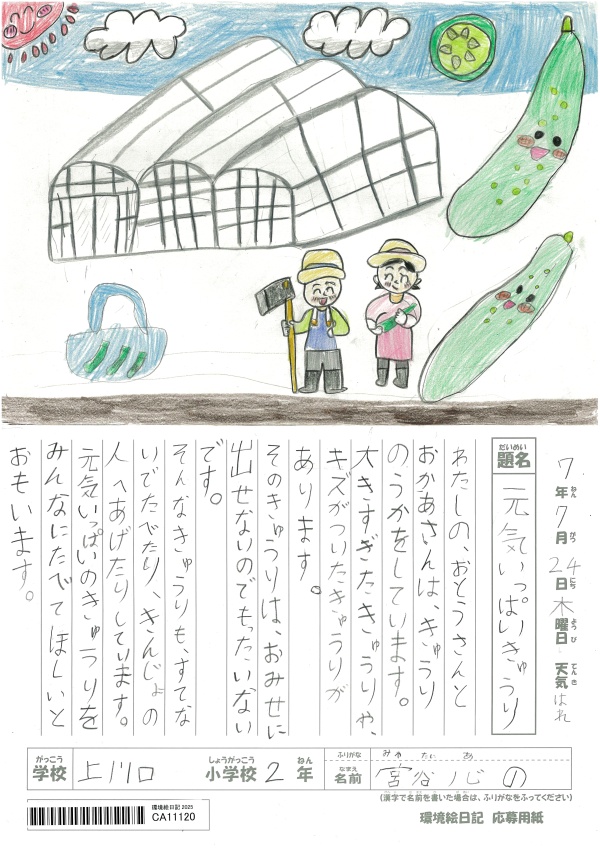 7年ねん7月がつ24日にち木曜日ようび 天気てんきはれ
だいめい
題名
元気いっぱいきゅうり
わたしの、おとうさんと
おかあさんは、きゅうり
のうかをしています。
大きすぎたきゅうりや、
キズがついたきゅうりが
あります。
そのきゅうりは、おみせに
出せないのでもったいない
です。
そんなきゅうりも、すてな
いでたべたり、きんじょの
人へあげたりしています。
元気いっぱいのきゅうりを
みんなにたべてほしいと
おもいます。
がっこう
学校
上川口
しょうがっこう
小学校
2
ねん
年
ふりがな
みや たに
なまえ
名前
宮谷 心の
(漢字で名前を書いた場合は、ふりがなをふってください)
環境絵日記 2025
CA11120
環境絵日記 応募用紙